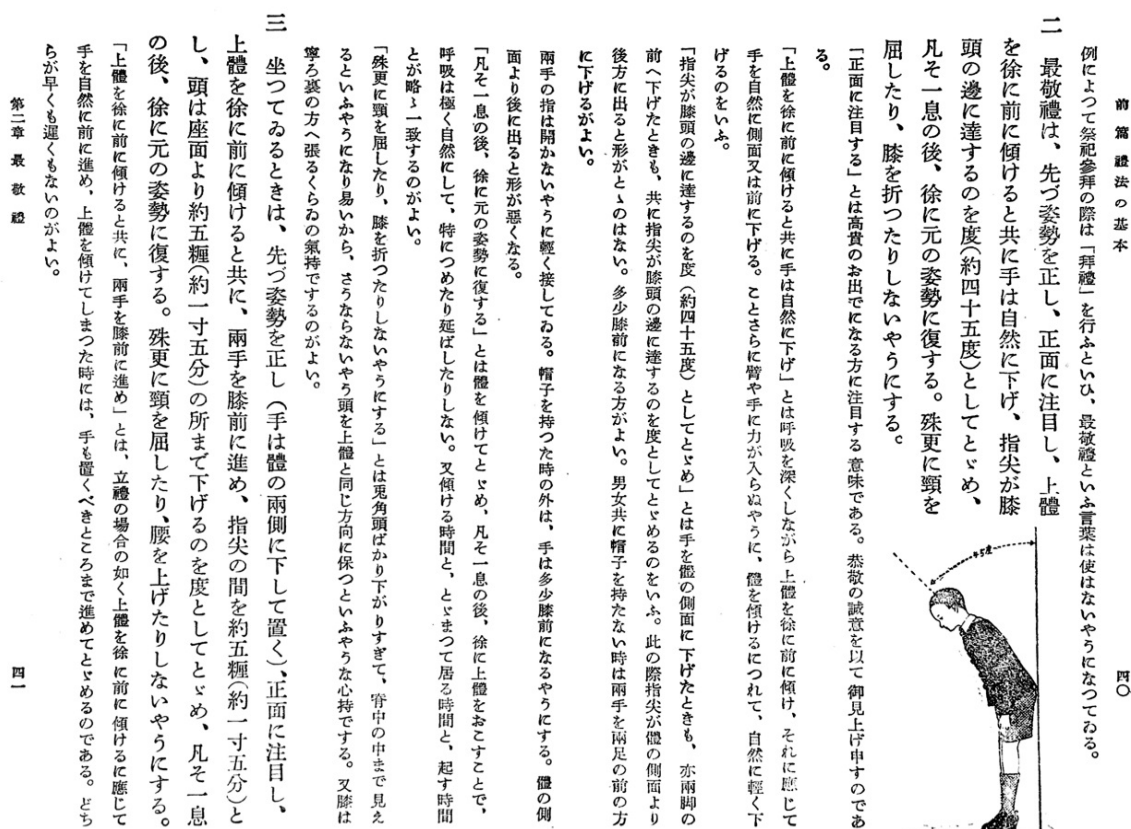 前篇　禮法の基本
四〇
例によつて祭祀參拜の際は「拜禮」を行ふといひ、最敬禮といふ言葉は使はないやうになつてゐる。
二　最敬禮は、先づ姿勢を正し、正面に注目し、上體
を徐に前に傾けると共に手は自然に下げ、指尖が膝
頭の邊に達するのを度(約四十五度)としてとゞめ、
凡そ一息の後、徐に元の姿勢に復する。殊更に頸を
屈したり、膝を折つたりしないやうにする。
45度
「正面に注目する」とは高貴のお出でになる方に注目する意味である。恭敬の誠意を以て御見上げ申すのであ
る。
「上體を徐に前に傾けると共に手は自然に下げ」とは呼吸を深くしながら上體を徐に前に傾け、それに應じて
手を自然に側面又は前に下げる。ことさらに臂や手に力が入らぬやうに、體を傾けるにつれて、自然に輕く下
げるのをいふ。
「指尖が膝頭の邊に達するのを度(約四十五度)としてとゞめ」とは手を體の側面に下げたときも、亦兩脚の
前へ下げたときも、共に指尖が膝頭の邊に達するのを度としてとゞめるのをいふ。此の際指尖が體の側面より
後方に出ると形がとゝのはない。多少膝前になる方がよい。男女共に帽子を持たない時は兩手を兩足の前の方
に下げるがよい。
兩手の指は開かないやうに輕く接してゐる。帽子を持つた時の外は、手は多少膝前になるやうにする。體の側
面より後に出ると形が惡くなる。
「凡そ一息の後、徐に元の姿勢に復する」とは體を傾けてとゞめ、凡そ一息の後、徐に上體をおこすことで、
呼吸は極く自然にして、特につめたり延ばしたりしない。又傾ける時間と、とゞまつて居る時間と、起す時間
とが略〻一致するのがよい。
「殊更に頸を屈したり、膝を折つたりしないやうにする」とは兎角頭ばかり下がりすぎて、背中の中まで見え
るといふやうになり易いから、さうならないやう頭を上體と同じ方向に保つといふやうな心持でする。又膝は
寧ろ裏の方へ張るくらゐの氣持でするのがよい。
三　坐つてゐるときは、先づ姿勢を正し(手は體の兩側に下して置く)、正面に注目し、
上體を徐に前に傾けると共に、兩手を膝前に進め、指尖の間を約五糎(約一寸五分)と
し、頭は座面より約五糎(約一寸五分)の所まで下げるのを度としてとゞめ、凡そ一息
の後、徐に元の姿勢に復する。殊更に頸を屈したり、腰を上げたりしないやうにする。
「上體を徐に前に傾けると共に、兩手を膝前に進め」とは、立禮の場合の如く上體を徐に前に傾けるに應じて
手を自然に前に進め、上體を傾けてしまつた時には、手も置くべきところまで進めてとゞめるのである。どち
らが早くも遲くもないのがよい。
第二章　最敬禮
四一